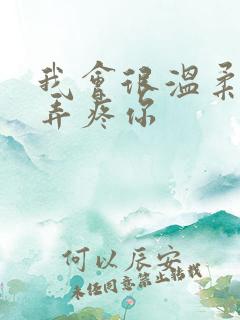 我會很溫柔
弄疼你
何以辰安
未经同意禁止转载